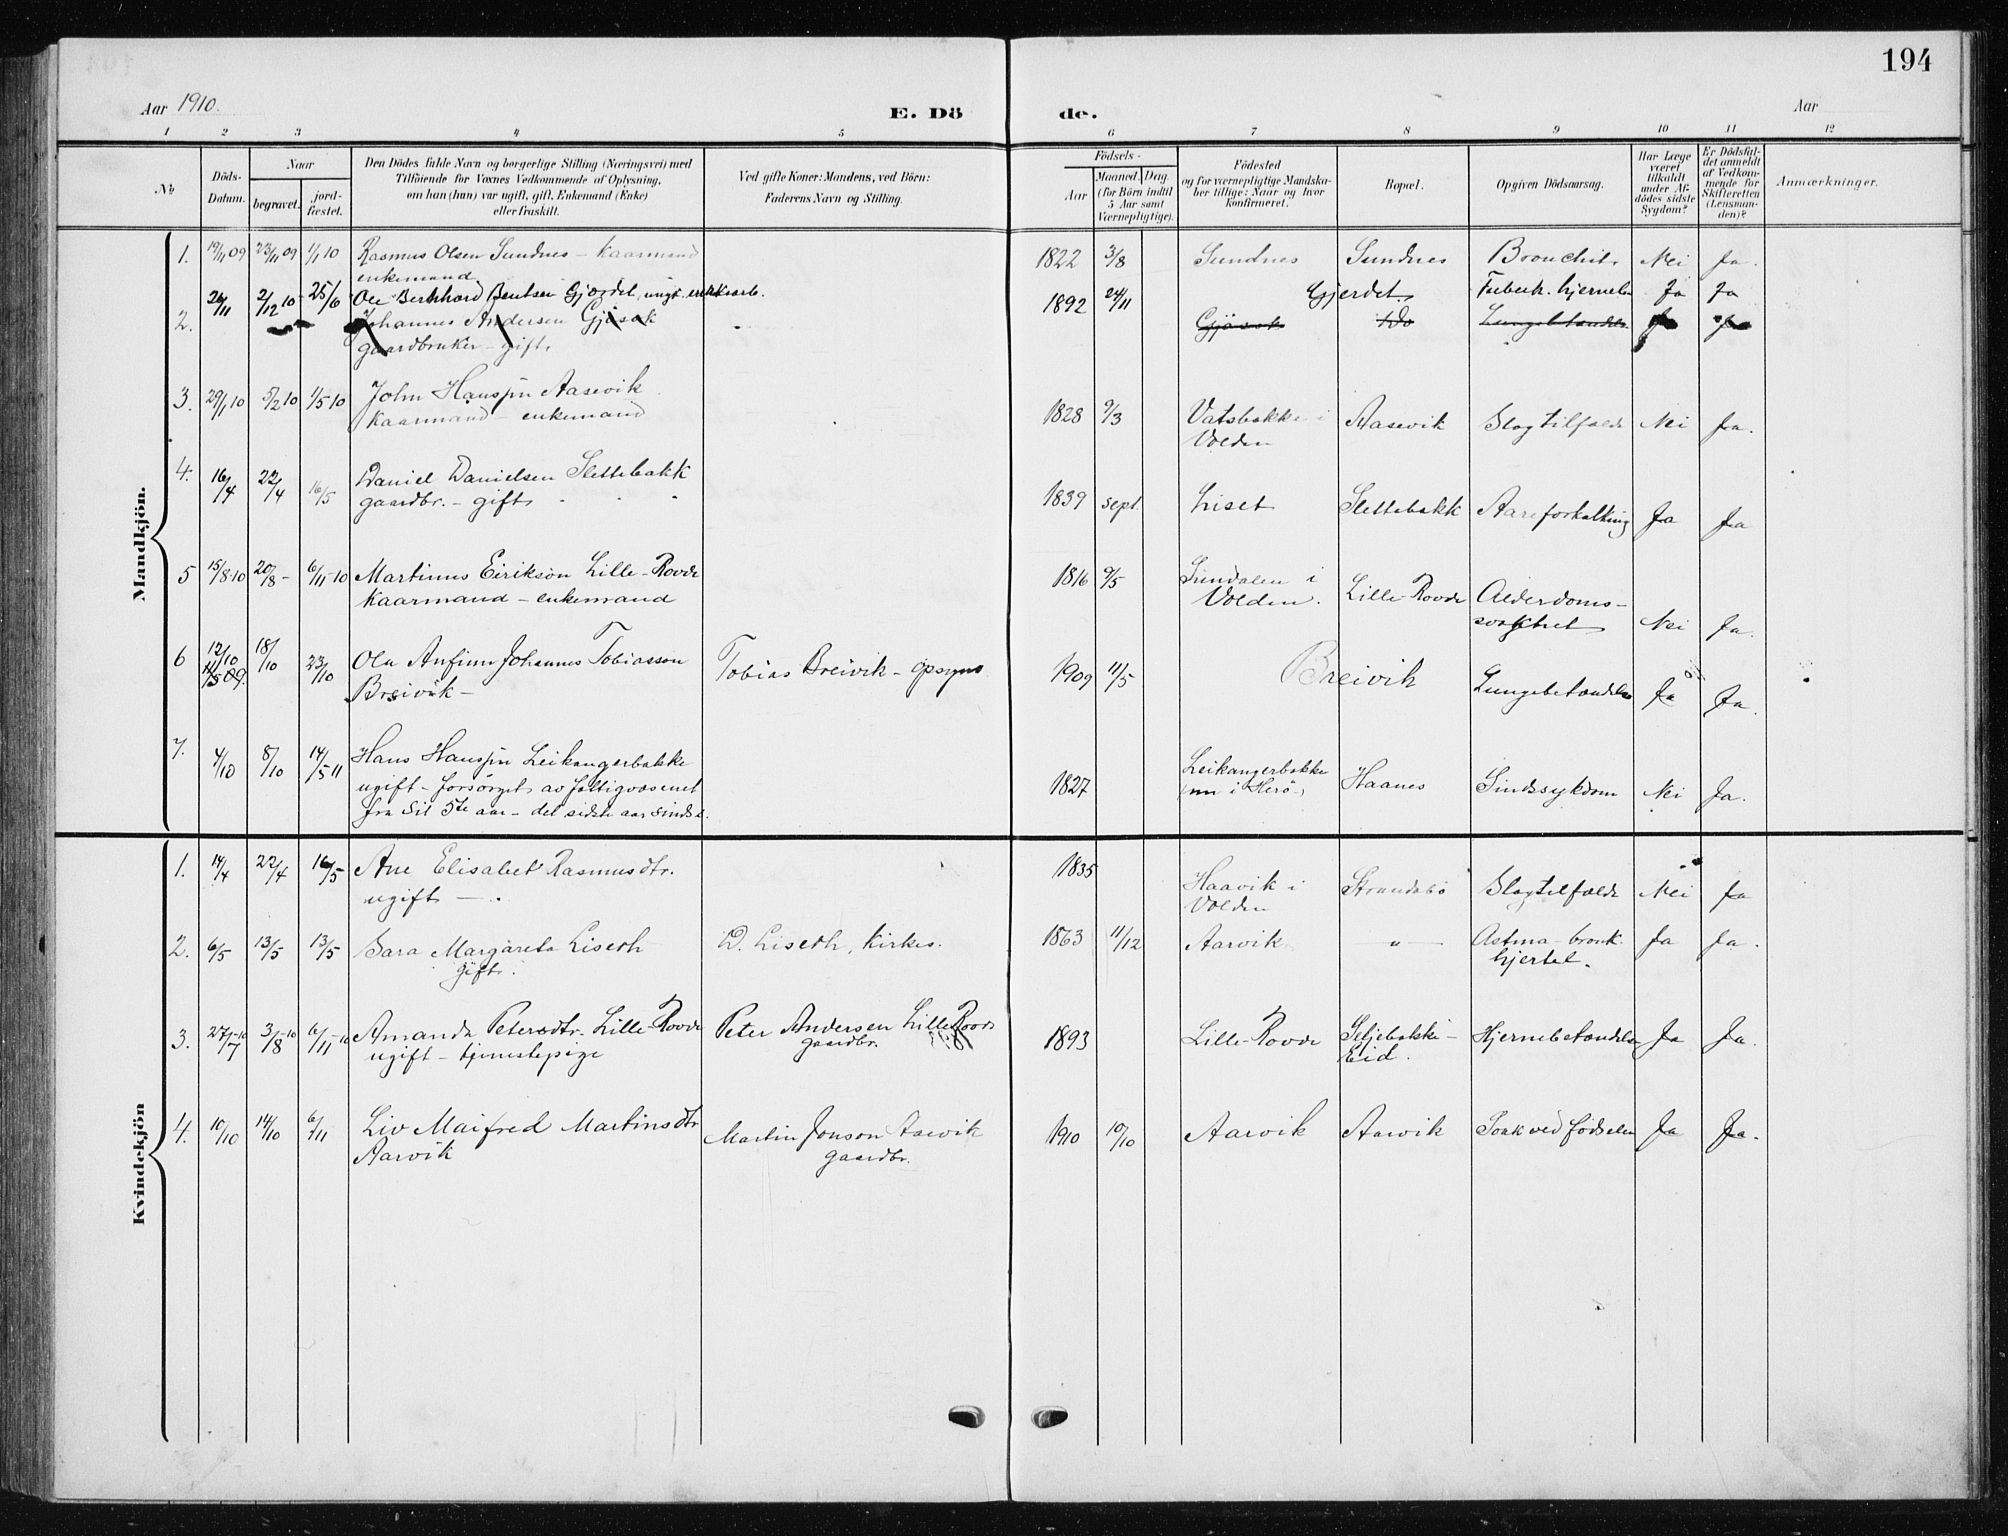 194
Aar 1910.
E. Dö
de.
Aar
1 2 3 4 5 6 7 8 9 10 11 12
No
Döds-Datum.
Naar
begravet.
jord-fæstet.
Den Dödes fulde Navn og borgerlige Stilling (Næringsvei) med
Tilföiende for Voxnes Vedkommende af Oplysning,
om han (hun) var ugift, gift, Enkemand (Enke)
eller fraskilt.
Ved gifte Koner: Mandens, ved Börn:
Faderens Navn og Stilling.
Födsels-
Aar
Maaned. Dag.
(for Börn indtil
5 Aar samt
Værnepligtige).
Födested
og for værnepligtige Mandska-
ber tillige: Naar og hvor
konfirmeret.
Bopæl.
Opgiven Dödsaarsag.
Har Læge
været
tilkaldt
under Af-
dödes sidste
Sygdom?
Er Dödsfal-
det anmeldt
af Vedkom-
mende for
Skifteretten
(Lensman-
den)?
Anmærkninger.
Mandkjön.
1. 19/11 09 23/11 09 1/1 10 Rasmus Olsen Sundnes – Kaarmand 1822 3/8 Sundnes Sundnes Bronchit. Nei Ja.
enkemand
26/11 2/12 10 25/6 Ole Bernhard Bentsen Gjerdet, ungk. 1892 24/11 Gjerdet Tuberk. hjerneb. Ja Ja
2. Johannes Andersen Gjøsak Gjøsak Do Lungebetændelse Ja Ja
gaardbruker – gift.
3. 29/1 10 5/2 10 1/5 10 John Hanssøn Aasevik 1828 9/3 Vatsbakke i Aasevik Slagtilfælde Nei Ja.
Kaarmand – enkemand Volden
4. 16/4 22/4 16/5 Daniel Danielsen Slettebakk 1839 sept. Liset Slettebakk Aareforkalkning Ja Ja
gaardbr. – gift
5 15/8 10 20/8 – 6/11 – 10 Martinus Eirikson Lille-Rovde 1816 9/5 Sundalen i Lille-Rovde Alderdoms-
Kaarmand – enkemand Volden. svakhet Nei Ja.
6 12/10 18/10 23/10 Ole Anfinn Johannes Tobiasson Tobias Breivik – opsyns 1909 11/5 Breivik Lungebetændelse Ja Ja.
11/5 09. Breivik –
7. 4/10 8/10 14/5 11 Hans Hanssøn Leikangerbakke 1827 Leikangerbakke Haanes Sindssykdom Nei Ja.
ugift – forsørget av fattigvæsenet ( i Herø)
fra sit 5te aar – det sidste aar sindss.
Kvindekjön
1. 14/4 22/4 16/5 Ane Elisabet Rasmusdtr. 1835 Haavik i Strandabø Slagtilfælde Nei Ja
ugift – . Volden
2. 6/5 13/5 13/5 Sara Margareta Liseth D. Liseth, Kirkes. 1863 11/12 Aarvik – " – Astma – bronk. Ja Ja.
gift. hjertel.
3. 27/7 – 10 3/8 – 10 6/11 – 10 Amanda Petersdtr. Lille-Rovde Peter Andersen Lille Rovde 1893 Lille-Rovde Seljebakke – Hjernebetændelse Ja Ja.
ugift – tjenestepige gaardbr. Eid.
4. 10/10 14/10 6/11 Liv Maifred Martinsdtr. Martin Jonson Aarvik 1910 10/10 Aarvik Aarvik Svak ved fødselen Ja Ja.
Aarvik gaardbr.